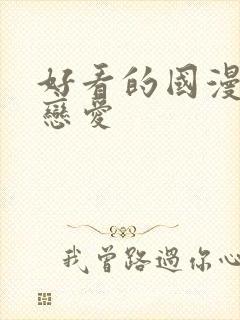 好看的國漫
戀愛
我曾路過你心